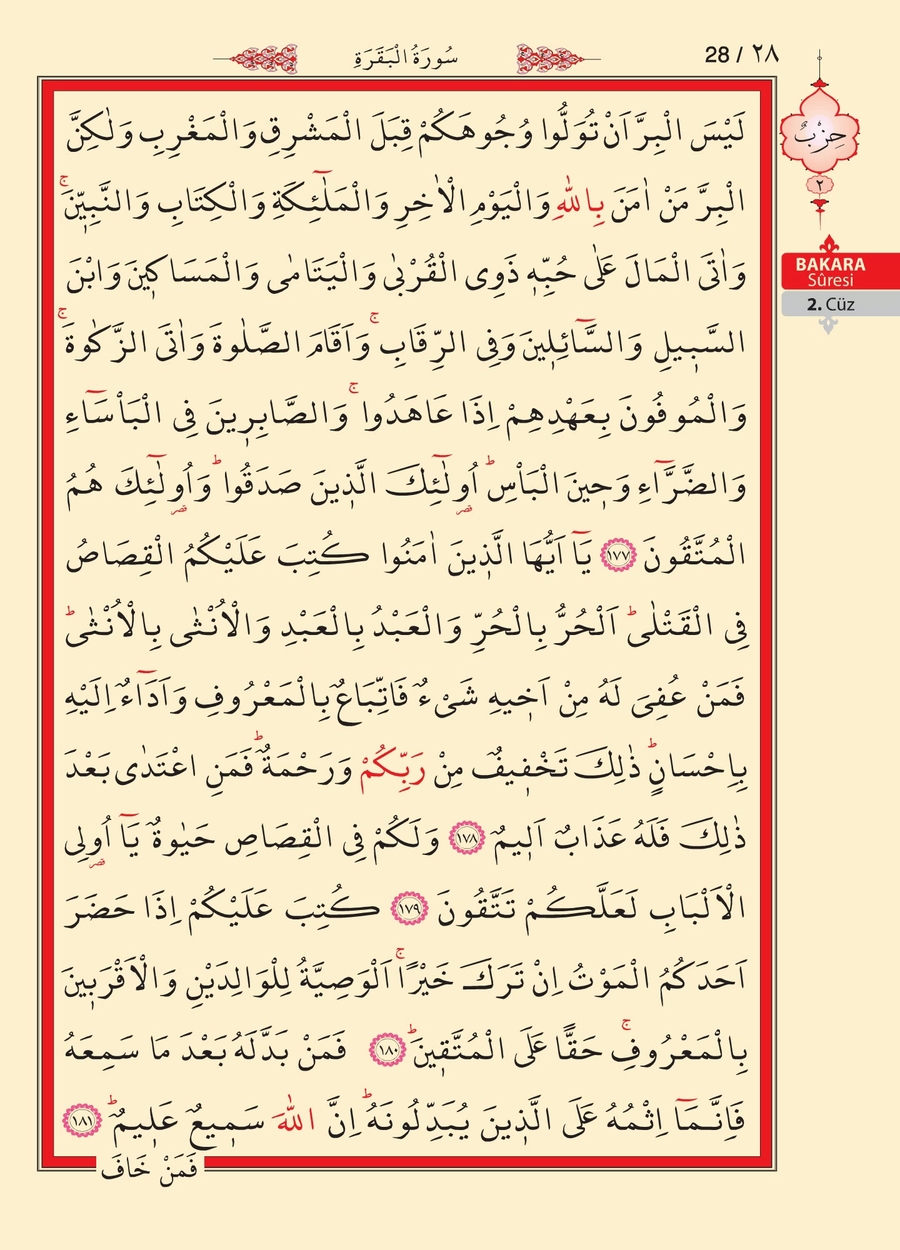 28 / ٢٨
سُورَةُ الْبَقَرَةِ
حِزْبٌ
٢
BAKARA
Sûresi
2. Cüz
لَيْسَ الْبِرَّ اَنْ تُوَلُّوا وُجُوهَكُمْ قِبَلَ الْمَشْرِقِ وَالْمَغْرِبِ وَلٰكِنَّ
الْبِرَّ مَنْ اٰمَنَ بِاللّٰهِ وَالْيَوْمِ الْاٰخِرِ وَالْمَلٰٓئِكَةِ وَالْكِتَابِ وَالنَّبِيّٖنَۚ
وَاٰتَى الْمَالَ عَلٰى حُبِّهٖ ذَوِى الْقُرْبٰى وَالْيَتَامٰى وَالْمَسَاكٖينَ وَابْنَ
السَّبٖيلِ وَالسَّٓائِلٖينَ وَفِى الرِّقَابِۚ وَاَقَامَ الصَّلٰوةَ وَاٰتَى الزَّكٰوةَۚ
وَالْمُوفُونَ بِعَهْدِهِمْ اِذَا عَاهَدُواۚ وَالصَّابِرٖينَ فِى الْبَأْسَٓاءِ
وَالضَّرَّٓاءِ وَحٖينَ الْبَأْسِؕ اُولٰٓئِكَ الَّذٖينَ صَدَقُواؕ وَاُولٰٓئِكَ هُمُ
الْمُتَّقُونَ ﴿١٧٧﴾ يَٓا اَيُّهَا الَّذٖينَ اٰمَنُوا كُتِبَ عَلَيْكُمُ الْقِصَاصُ
فِى الْقَتْلٰىؕ اَلْحُرُّ بِالْحُرِّ وَالْعَبْدُ بِالْعَبْدِ وَالْاُنْثٰى بِالْاُنْثٰىؕ
فَمَنْ عُفِىَ لَهُ مِنْ اَخٖيهِ شَىْءٌ فَاتِّبَاعٌ بِالْمَعْرُوفِ وَاَدَٓاءٌ اِلَيْهِ
بِاِحْسَانٍؕ ذٰلِكَ تَخْفٖيفٌ مِنْ رَبِّكُمْ وَرَحْمَةٌؕ فَمَنِ اعْتَدٰى بَعْدَ
ذٰلِكَ فَلَهُ عَذَابٌ اَلٖيمٌ ﴿١٧٨﴾ وَلَكُمْ فِى الْقِصَاصِ حَيٰوةٌ يَٓا اُولِى
الْاَلْبَابِ لَعَلَّكُمْ تَتَّقُونَ ﴿١٧٩﴾ كُتِبَ عَلَيْكُمْ اِذَا حَضَرَ
اَحَدَكُمُ الْمَوْتُ اِنْ تَرَكَ خَيْرًاۚ اَلْوَصِيَّةُ لِلْوَالِدَيْنِ وَالْاَقْرَبٖينَ
بِالْمَعْرُوفِۚ حَقًّا عَلَى الْمُتَّقٖينَؕ ﴿١٨٠﴾ فَمَنْ بَدَّلَهُ بَعْدَ مَا سَمِعَهُ
فَاِنَّمَٓا اِثْمُهُ عَلَى الَّذٖينَ يُبَدِّلُونَهُؕ اِنَّ اللّٰهَ سَمٖيعٌ عَلٖيمٌؕ ﴿١٨١﴾
فَمَنْ خَافَ